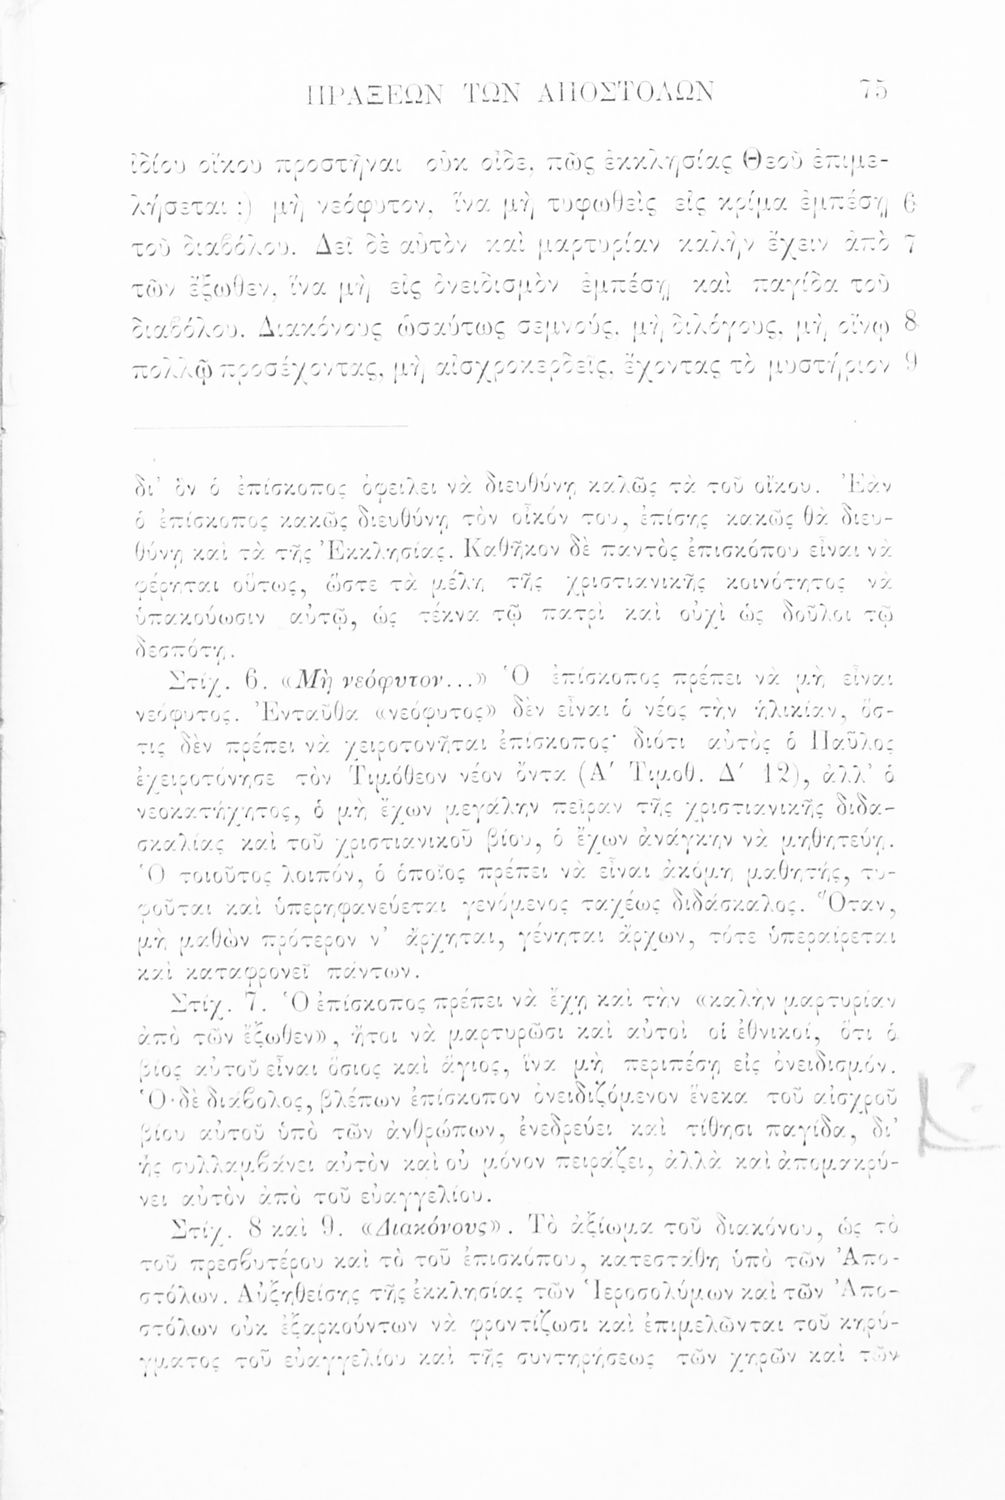 ΠΡΑΞΕΩΝ ΤΩΝ ΑΠΟΣΤΟΛΩΝ 75
ἰδίου οἴκου προστῆναι οὐκ οἶδε, πῶς ἐκκλησίας Θεοῦ ἐπιμε-
λήσεται ;) μὴ νεόφυτον, ἵνα μὴ τυφωθεὶς εἰς κρίμα ἐμπέσῃ 6
τοῦ διαβόλου. Δεῖ δὲ αὐτὸν καὶ μαρτυρίαν καλὴν ἔχειν ἀπὸ 7
τῶν ἔξωθεν, ἵνα μὴ εἰς ὀνειδισμὸν ἐμπέσῃ καὶ παγίδα τοῦ
διαβόλου. Διακόνους ὡσαύτως σεμνούς, μὴ διλόγους, μὴ οἴνῳ 8
πολλῷ προσέχοντας, μὴ αἰσχροκερδεῖς, ἔχοντας τὸ μυστήριον 9
δι' ὃν ὁ ἐπίσκοπος ὀφείλει νὰ διευθύνῃ καλῶς τὰ τοῦ οἴκου. Ἐὰν
ὁ ἐπίσκοπος κακῶς διευθύνῃ τὸν οἶκόν του, ἐπίσης κακῶς θὰ διευ-
θύνῃ καὶ τὰ τῆς Ἐκκλησίας. Καθῆκον δὲ παντὸς ἐπισκόπου εἶναι νὰ
φέρηται οὕτως, ὥστε τὰ μέλη τῆς χριστιανικῆς κοινότητος νὰ
ὑπακούωσιν αὐτῷ, ὡς τέκνα τῷ πατρὶ καὶ οὐχὶ ὡς δοῦλοι τῷ
δεσπότῃ.
Στίχ. 6. «Μὴ νεόφυτον...» Ὁ ἐπίσκοπος πρέπει νὰ μὴ εἶναι
νεόφυτος. Ἐνταῦθα «νεόφυτος» δὲν εἶναι ὁ νέος τὴν ἡλικίαν, ὅσ-
τις δὲν πρέπει νὰ χειροτονῆται ἐπίσκοπος· διότι αὐτὸς ὁ Παῦλος
ἐχειροτόνησε τὸν Τιμόθεον νέον ὄντα (Α' Τιμοθ. Δ' 12), ἀλλ' ὁ
νεοκατήχητος, ὁ μὴ ἔχων μεγάλην πεῖραν τῆς χριστιανικῆς διδα-
σκαλίας καὶ τοῦ χριστιανικοῦ βίου, ὁ ἔχων ἀνάγκην νὰ μηθητεύῃ.
Ὁ τοιοῦτος λοιπόν, ὁ ὁποῖος πρέπει νὰ εἶναι ἀκόμη μαθητής, τυ-
φοῦται καὶ ὑπερηφανεύεται γενόμενος ταχέως διδάσκαλος. Ὅταν,
μὴ μαθὼν πρότερον ν' ἄρχηται, γένηται ἄρχων, τότε ὑπεραίρεται
καὶ καταφρονεῖ πάντων.
Στίχ. 7. Ὁ ἐπίσκοπος πρέπει νὰ ἔχῃ καὶ τὴν «καλὴν μαρτυρίαν
ἀπὸ τῶν ἔξωθεν», ἤτοι νὰ μαρτυρῶσι καὶ αὐτοὶ οἱ ἐθνικοί, ὅτι ὁ
βίος αὐτοῦ εἶναι ὅσιος καὶ ἅγιος, ἵνα μὴ περιπέσῃ εἰς ὀνειδισμόν.
Ὁ δὲ διάβολος, βλέπων ἐπίσκοπον ὀνειδιζόμενον ἕνεκα τοῦ αἰσχροῦ
βίου αὐτοῦ ὑπὸ τῶν ἀνθρώπων, ἐνεδρεύει καὶ τίθησι παγίδα, δι'
ἧς συλλαμβάνει αὐτὸν καὶ οὐ μόνον πειράζει, ἀλλὰ καὶ ἀπομακρύ-
νει αὐτὸν ἀπὸ τοῦ εὐαγγελίου.
Στίχ. 8 καὶ 9. «Διακόνους». Τὸ ἀξίωμα τοῦ διακόνου, ὡς τὸ
τοῦ πρεσβυτέρου καὶ τὸ τοῦ ἐπισκόπου, κατεστάθη ὑπὸ τῶν Ἀπο-
στόλων. Αὐξηθείσης τῆς ἐκκλησίας τῶν Ἱεροσολύμων καὶ τῶν Ἀπο-
στόλων οὐκ ἐξαρκούντων νὰ φροντίζωσι καὶ ἐπιμελῶνται τοῦ κηρύ-
γματος τοῦ εὐαγγελίου καὶ τῆς συντηρήσεως τῶν χηρῶν καὶ τῶν